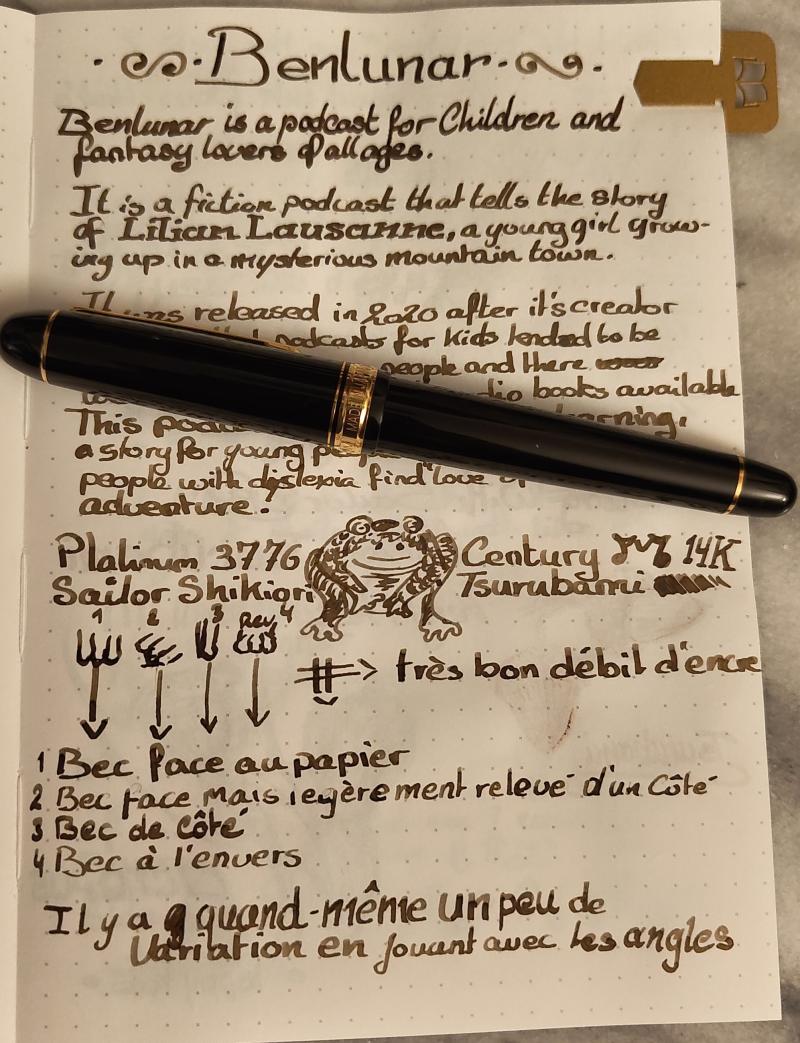 Benlunar
Benlunar is a podcast for Children and
fantasy lovers of all ages.
It is a fiction podcast that tells the story
of Lilian Lausanne, a young girl grow-
ing up in a mysterious mountain town.
It was released in 2020 after it's creator
podcasts for kids tended to be
people and there
books available
MADE
This
a story for young
people with dyslexia find love
adventure.
Platinum 3776 Century 14K
Sailor Shikiori Tsurubami
1 2 3 Rev 4
très bon débit d'encre
1 Bec face au papier
2 Bec face mais legèrement relevé d'un Côté
3 Bec de côté
4 Bec à l'envers
Il y a quand-même un peu de
Variation en jouant avec les angles